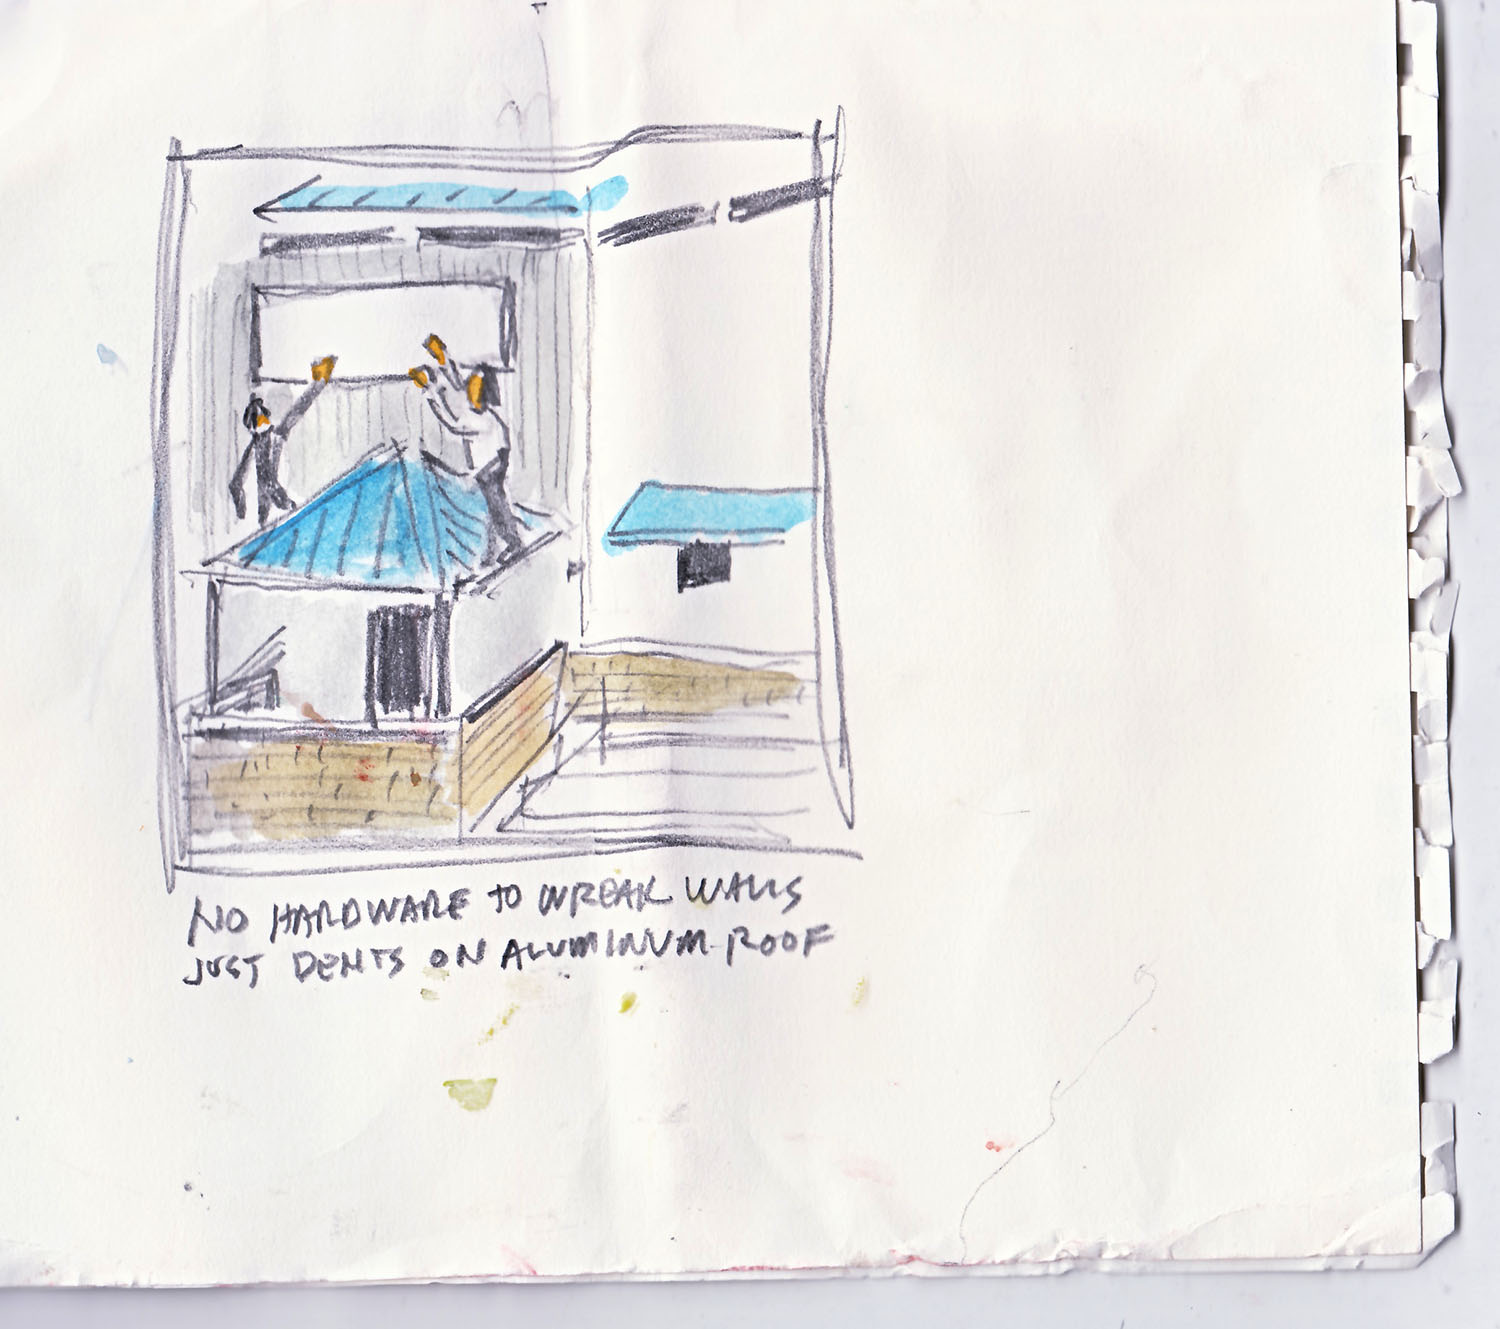 NO HARDWARE TO WREAK WALLS
JUST DENTS ON ALUMINUM ROOF